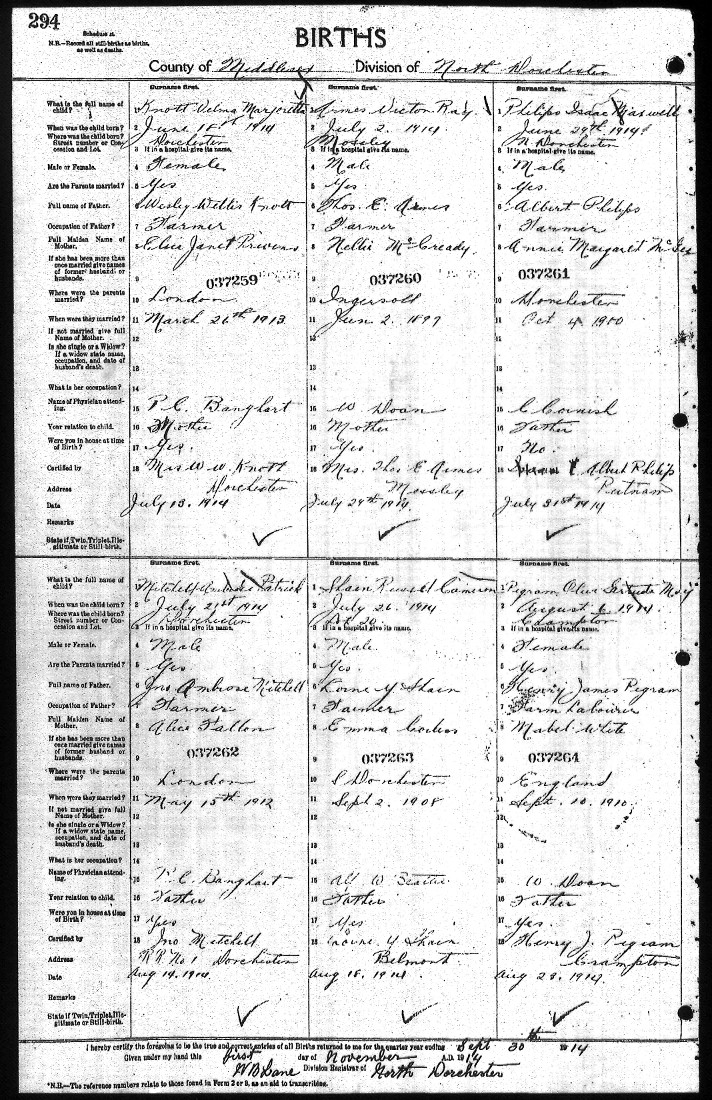 294
Schedule A.
N.B.—Record all still-births as births, as well as deaths.
BIRTHS
County of Middlesex Division of North Dorchester
Surname first. Surname first. Surname first.
What is the full name of child? 1 Knott Velma Marjoretta 1 Armes Victor Ray 1 Philips Isaac Maxwell
When was the child born? 2 June 15th 1914 2 July 2. 1914. 2 June 29th 1914
Where was the child born? Street number or Concession and Lot. 3 Dorchester Mossley N Dorchester
If in a hospital give its name. If in a hospital give its name. If in a hospital give its name.
Male or Female. 4 Female 4 Male 4 Male
Are the Parents married? 5 Yes 5 Yes. 5 Yes.
Full name of Father. 6 Wesley Willis Knott 6 Thos. E. Armes 6 Albert Philips
Occupation of Father? 7 Farmer 7 Farmer 7 Farmer
Full Maiden Name of Mother. 8 Janet 8 Nellie McCready. 8 Annie Margaret McGee
If she has been more than once married give names of former husband or husbands. 9 9 9
037259 037260 037261
Where were the parents married? 10 London 10 Ingersoll 10 Dorchester
When were they married? 11 March 26th 1913 11 Jun 2. 1897 11 Oct 4 1900
If not married give full Name of Mother. 12 12 12
Is she single or a Widow? If a widow state name, occupation, and date of husband's death. 13 13 13
What is her occupation? 14 14 14
Name of Physician attending. 15 P. C. Banghart 15 W Doan 15 C Cornish
Your relation to child. 16 Mother 16 Mother 16 Father
Were you in house at time of Birth? 17 Yes. 17 Yes. 17 No.
Certified by 18 Mrs W W. Knott 18 Mrs. Thos E Armes 18 Albert Philip
Address Dorchester Mossley Putnam
Date July 13. 1914 July 29th 1914 July 31st 1914
Remarks
State if Twin, Triplet, Illegitimate or Still-birth.
Surname first. Surname first. Surname first.
What is the full name of child? 1 Mitchell Ambrose Patrick 1 Shain Russell Cameron 1 Pegram Olive Gertrude May
When was the child born? 2 July 21st 1914 2 July 26. 1914 2 August 6. 1914.
Where was the child born? Street number or Concession and Lot. 3 Dorchester Lot 20. Crampton
If in a hospital give its name. If in a hospital give its name. If in a hospital give its name.
Male or Female. 4 Male 4 Male. 4 Female
Are the Parents married? 5 Yes 5 Yes. 5 Yes.
Full name of Father. 6 Jno Ambrose Mitchell 6 Lorne Y Shain 6 Henry James Pegram
Occupation of Father? 7 Farmer 7 Farmer 7 Farm Labourer
Full Maiden Name of Mother. 8 Alice Fallon 8 Emma 8 Mabel White
If she has been more than once married give names of former husband or husbands. 9 9 9
037262 037263 037264
Where were the parents married? 10 London 10 S Dorchester 10 England
When were they married? 11 May 15th 1912 11 Sept 2. 1908 11 Sept. 10. 1910.
If not married give full Name of Mother. 12 12 12
Is she single or a Widow? If a widow state name, occupation, and date of husband's death. 13 13 13
What is her occupation? 14 14 14
Name of Physician attending. 15 P. C. Banghart 15 W Beattie 15 W. Doan
Your relation to child. 16 Father 16 Father 16 Father
Were you in house at time of Birth? 17 Yes 17 Yes 17 Yes.
Certified by 18 Jno Mitchell 18 Lorne Y Shain 18 Henry J. Pegram
Address R.R. No 1 Dorchester Belmont Crampton
Date Aug 14. 1914. Aug 18. 1914. Aug 28. 1914.
Remarks
State if Twin, Triplet, Illegitimate or Still-birth.
I hereby certify the foregoing to be the true and correct entries of all Births returned to me for the quarter year ending Sept 30th 1914
Given under my hand this first day of November A.D. 1914
W B Lane Division Registrar of North Dorchester
*N.B.—The reference numbers relate to those found in Form 2 or 3, as an aid to transcribing.